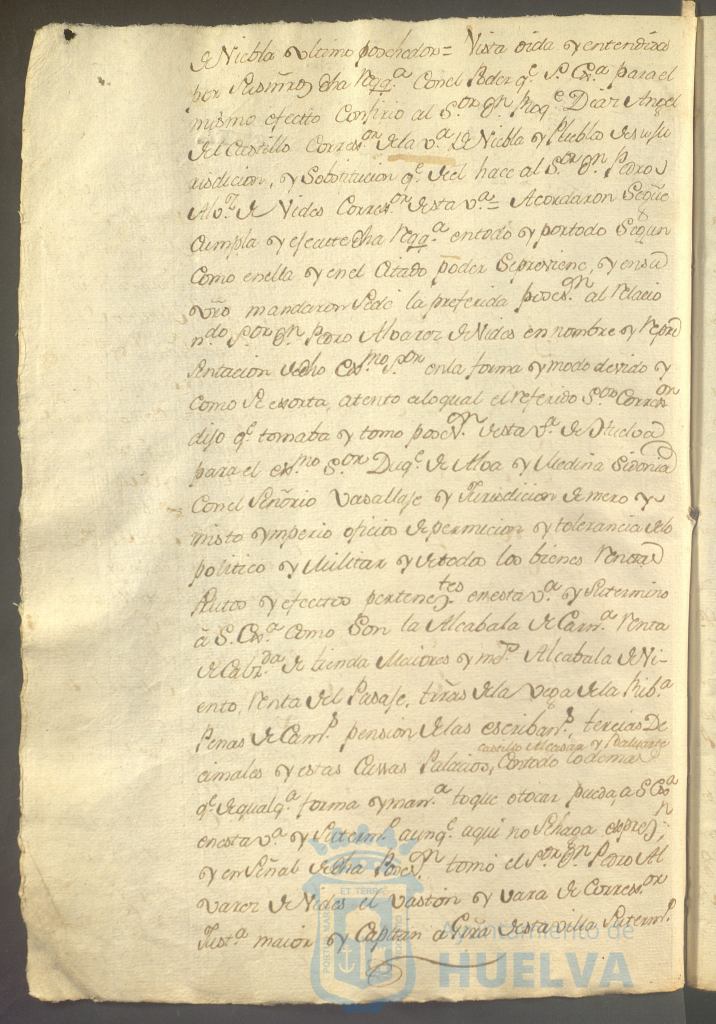 de Niebla ultimo poshedor = Vista oida y entendida
por sus mrds dha Reqq.ª con el Poder q.e S. Ex.ª para el
mismo efecto confirio al S.or D.n Roq.e Diaz Angel
del Castillo Corres.or de la v.ª de Niebla y Pueblos de su ju
risdicion, y Sobstitucion q.e de el hace al S.or D.n Pedro
Alv.z de Nides Corres.or de esta v.ª = Acordaron se gue
cumpla y efecute dha Reqq.ª en todo y por todo Segun
como en ella y en el citado poder se previene, y en su
mandaron se dé la preferida poses.on al relacio
n.do S.or D.n Pedro Alvarez de Nides en nombre y repre
sentacion de dho Ex.mo S.or en la forma y modo devido y
como se essorta, atento a lo qual el referido S.or Corres.or
dijo q.e tomaba y tomo poses.on de esta v.ª de Huelva
para el ex.mo S.or Duq.e de Alva y Medina Sidonia
con el Señorio vasallaje y Jurisdicion de mero y
misto ymperio oficios de permicion y tolerancia de lo
politico y Militar y de todos los bienes rentas
frutos y efectos pertenec.tes en esta v.ª y su termino
á S. Ex.ª como Son la Alcabala de Carn.ª renta
de Cab.da de tienda Maiores y m.s Alcabala de Vi-
ento, renta del Pasaje, tiñas de la Vega de la Rib.ª
Penas de Cam.ª pension de las escriban.s, tercias De
castillo Alcasar y Baluarte
cimales y estas Cassas Palacios, con todo lo demas
q.e de qualq.ª forma y man.ª toque o tocar pueda, a S. Ex.ª
en esta v.ª y su term.º aunq.e aqui no se haga espres.n
y en Señal de dha Poses.on tomó el S.or D.n Pedro Al
varez de Nides el vastón y vara de Corres.or
Just.ª maior y Capitan a Grra de esta villa su term.º
PORTUS MARIS ET TERRAE CUSTODIA
Ayuntamiento de
HUELVA